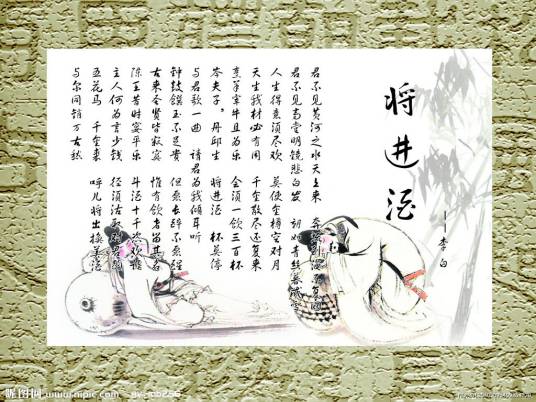 将进酒
——李白
君不见黄河之水天上来 奔流到海不复回
君不见高堂明镜悲白发 朝如青丝暮成雪
人生得意须尽欢 莫使金樽空对月
天生我材必有用 千金散尽还复来
烹羊宰牛且为乐 会须一饮三百杯
岑夫子。丹邱生 将进酒 杯莫停
与君歌一曲 请君为我倾耳听
钟鼓馔玉不足贵 但愿长醉不愿醒
古来圣贤皆寂寞 惟有饮者留其名
陈王昔时宴平乐 斗酒十千恣欢谑
主人何为言少钱 径须沽取对君酌
五花马 千金裘 呼儿将出换美酒
与尔同销万古愁
昵图网 www.nipic.com